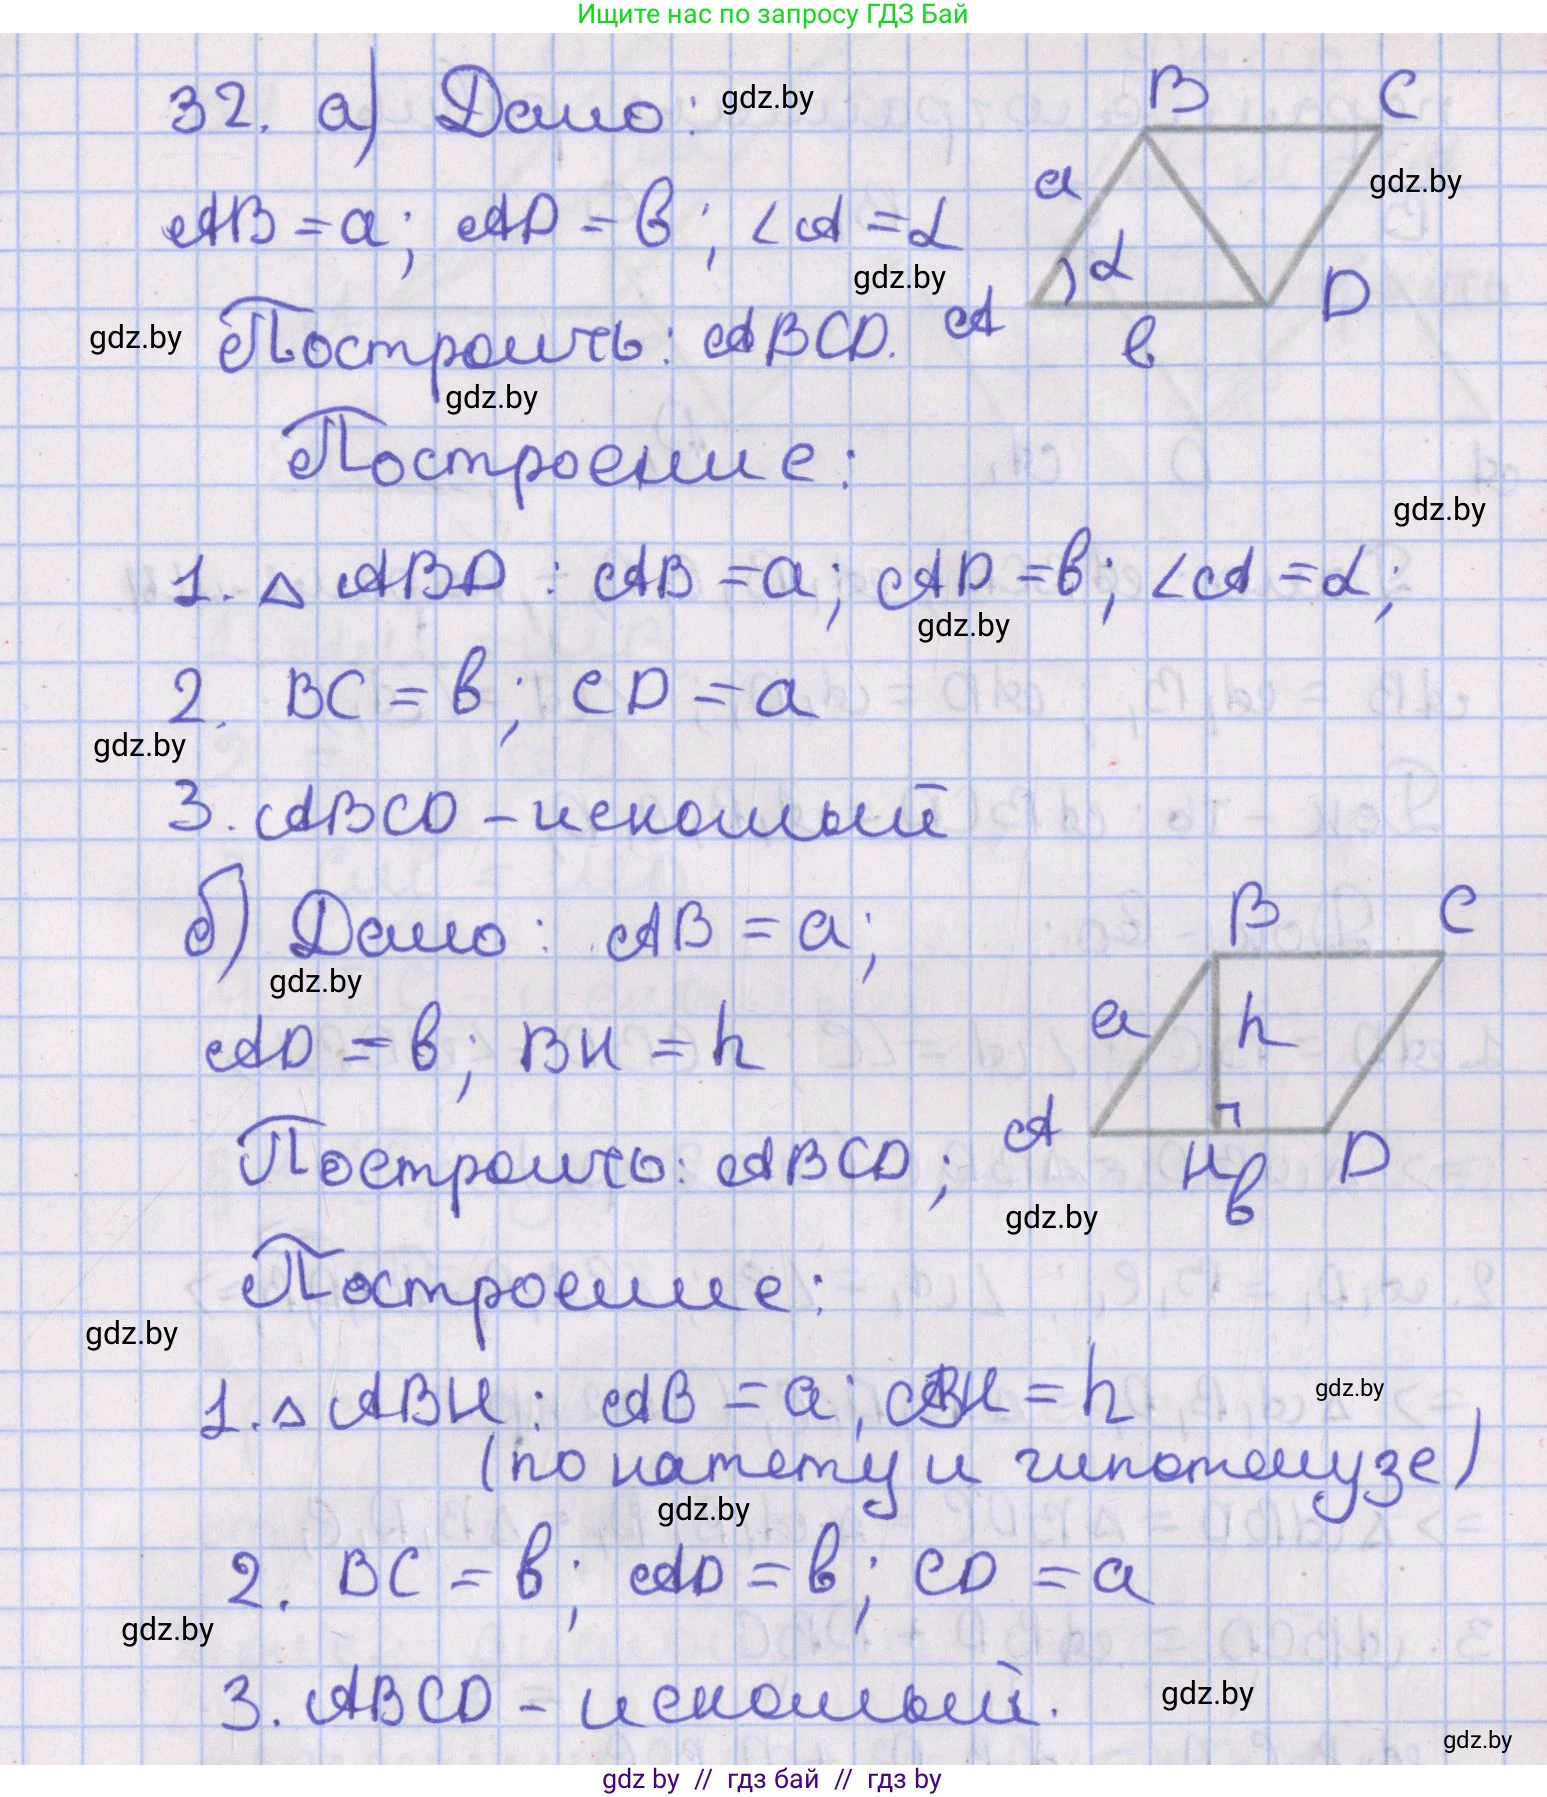 Ищите нас по запросу ГДЗ Бай
32. а) Дано: gdz.by
B C
a gdz.by
AB = a; AD = b; ∠A = α
α
gdz.by
A D
b
gdz.by Построить: ABCD.
gdz.by
Построение:
gdz.by
1. △ ABD : AB = a; AD = b; ∠A = α;
gdz.by
2. BC = b; CD = a
gdz.by
3. ABCD – искомый
б) Дано: AB = a;
B C
gdz.by
a h
AD = b; BH = h
A H D
b
Построить: ABCD;
gdz.by
Построение:
gdz.by
1. △ ABH : AB = a; BH = h
gdz.by
(по катету и гипотенузе)
gdz.by
2. BC = b; AD = b; CD = a
gdz.by
3. ABCD – искомый.
gdz.by
gdz.by
gdz by // гдз бай // гдз by